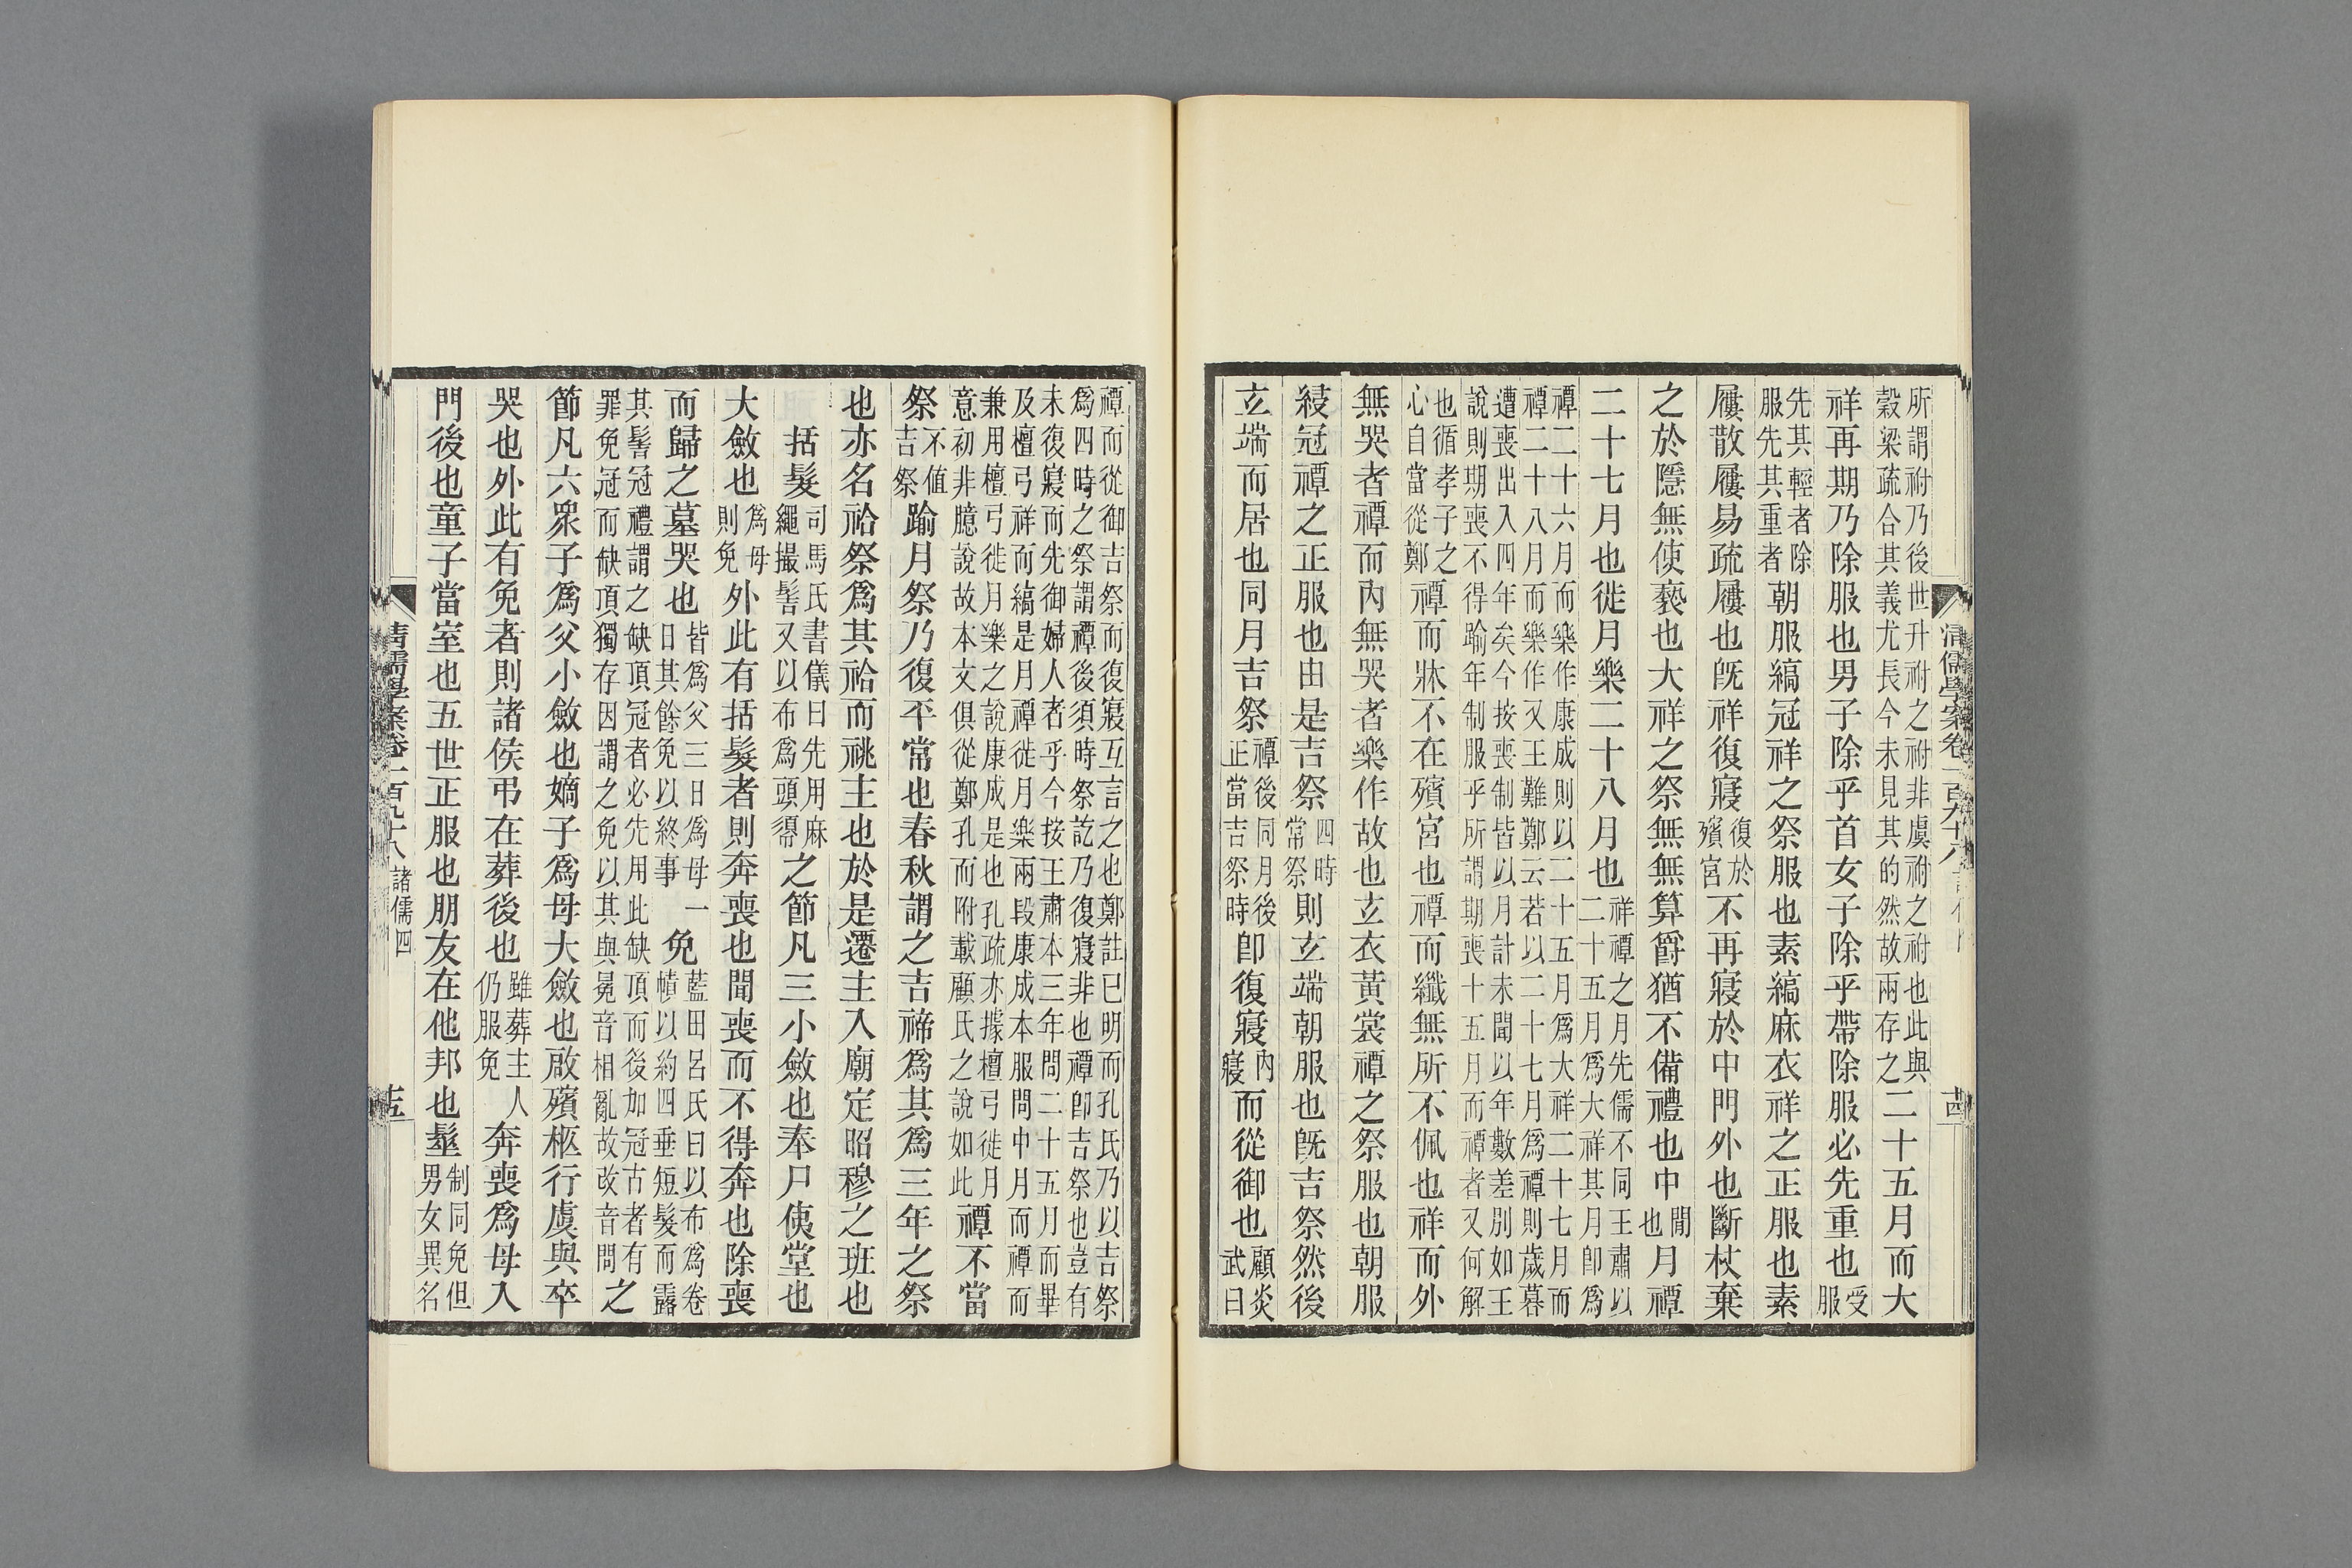 所謂祔乃後世升祔之祔非虞祔之祔也此與
穀梁疏合其義尤長今未見其的然故兩存之二十五月而大
祥再期乃除服也男子除乎首女子除乎帶除服必先重也受服
先其輕者除
服先其重者朝服縞冠祥之祭服也素縞麻衣祥之正服也素
屨散屨易疏屨也旣祥復寢復於殯宮不再寢於中門外也斷杖棄
之於隱無使褻也大祥之祭無無算爵猶不備禮也中閒也月禫
二十七月也徙月樂二十八月也祥禫之月先儒不同王肅以二十五月爲大祥其月卽爲
禫二十六月而樂作康成則以二十五月爲大祥二十七月而
禫二十八月而樂作又王難鄭云若以二十七月爲禫則歲暮
遭喪出入四年矣今按喪制皆以月計未聞以年數差別如王
說則期喪不得踰年制服乎所謂期喪十五月而禫者又何解
也循孝子之
心自當從鄭禫而牀不在殯宮也禫而纖無所不佩也祥而外
無哭者禫而內無哭者樂作故也玄衣黃裳禫之祭服也朝服
綅冠禫之正服也由是吉祭四時常祭則玄端朝服也旣吉祭然後
玄端而居也同月吉祭禫後同月後正當吉祭時卽復寢內寢而從御也顧炎武曰
禫而從御吉祭而復寢互言之也鄭註已明而孔氏乃以吉祭
爲四時之祭謂禫後須時祭訖乃復寢非也禫卽吉祭也豈有
未復寢而先御婦人者乎今按王肅本三年問二十五月而畢
及檀弓祥而縞是月禫徙月樂兩段康成本服問中月而禫而
兼用檀弓徙月樂之說康成是也孔疏亦據檀弓徙月
意初非臆說故本文俱從鄭孔而附載顧氏之說如此禫不當
祭不值吉祭踰月祭乃復平常也春秋謂之吉禘爲其爲三年之祭
也亦名祫祭爲其祫而祧主也於是遷主入廟定昭穆之班也
括髮司馬氏書儀曰先用麻繩撮髻又以布爲頭𢄼之節凡三小斂也奉尸侇堂也
大斂也爲母則免外此有括髮者則奔喪也聞喪而不得奔也除喪
而歸之墓哭也皆爲父三日爲母一日其餘免以終事免藍田呂氏曰以布爲卷幘以約四垂短髮而露
其髻冠禮謂之缺項冠者必先用此缺項而後加冠古者有
罪免冠而缺項獨存因謂之免以其與冕音相亂故改音問之
節凡六衆子爲父小斂也嫡子爲母大斂也啟殯柩行虞與卒
哭也外此有免者則諸侯弔在葬後也雖葬主人仍服免奔喪爲母入
門後也童子當室也五世正服也朋友在他邦也髽制同免但男女異名
清儒學案卷一百九十八 諸儒四
十四
清儒學案卷一百九十八 諸儒四
十五